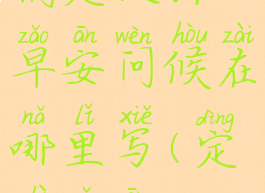 zǎo ān wèn hòu zài
早安问候在
nǎ lǐ xiě dìng
哪里写(定